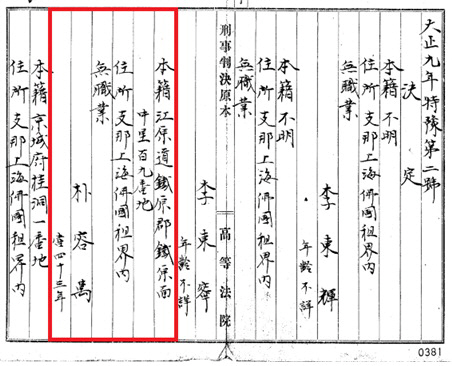 大正九年特豫第二號
決定
本籍 不明
住所 支那上海佛國租界內
無職業
李東輝
年齡不詳
本籍 不明
住所 支那上海佛國租界內
無職業
刑事判決原本 高等法院
李東寧
年齡不詳
本籍 江原道鐵原郡鐵原面
中里百九番地
住所 支那上海佛國租界內
無職業
朴容萬
當四十三年
本籍 京城府桂洞一番地
住所 支那上海佛國租界內
0381